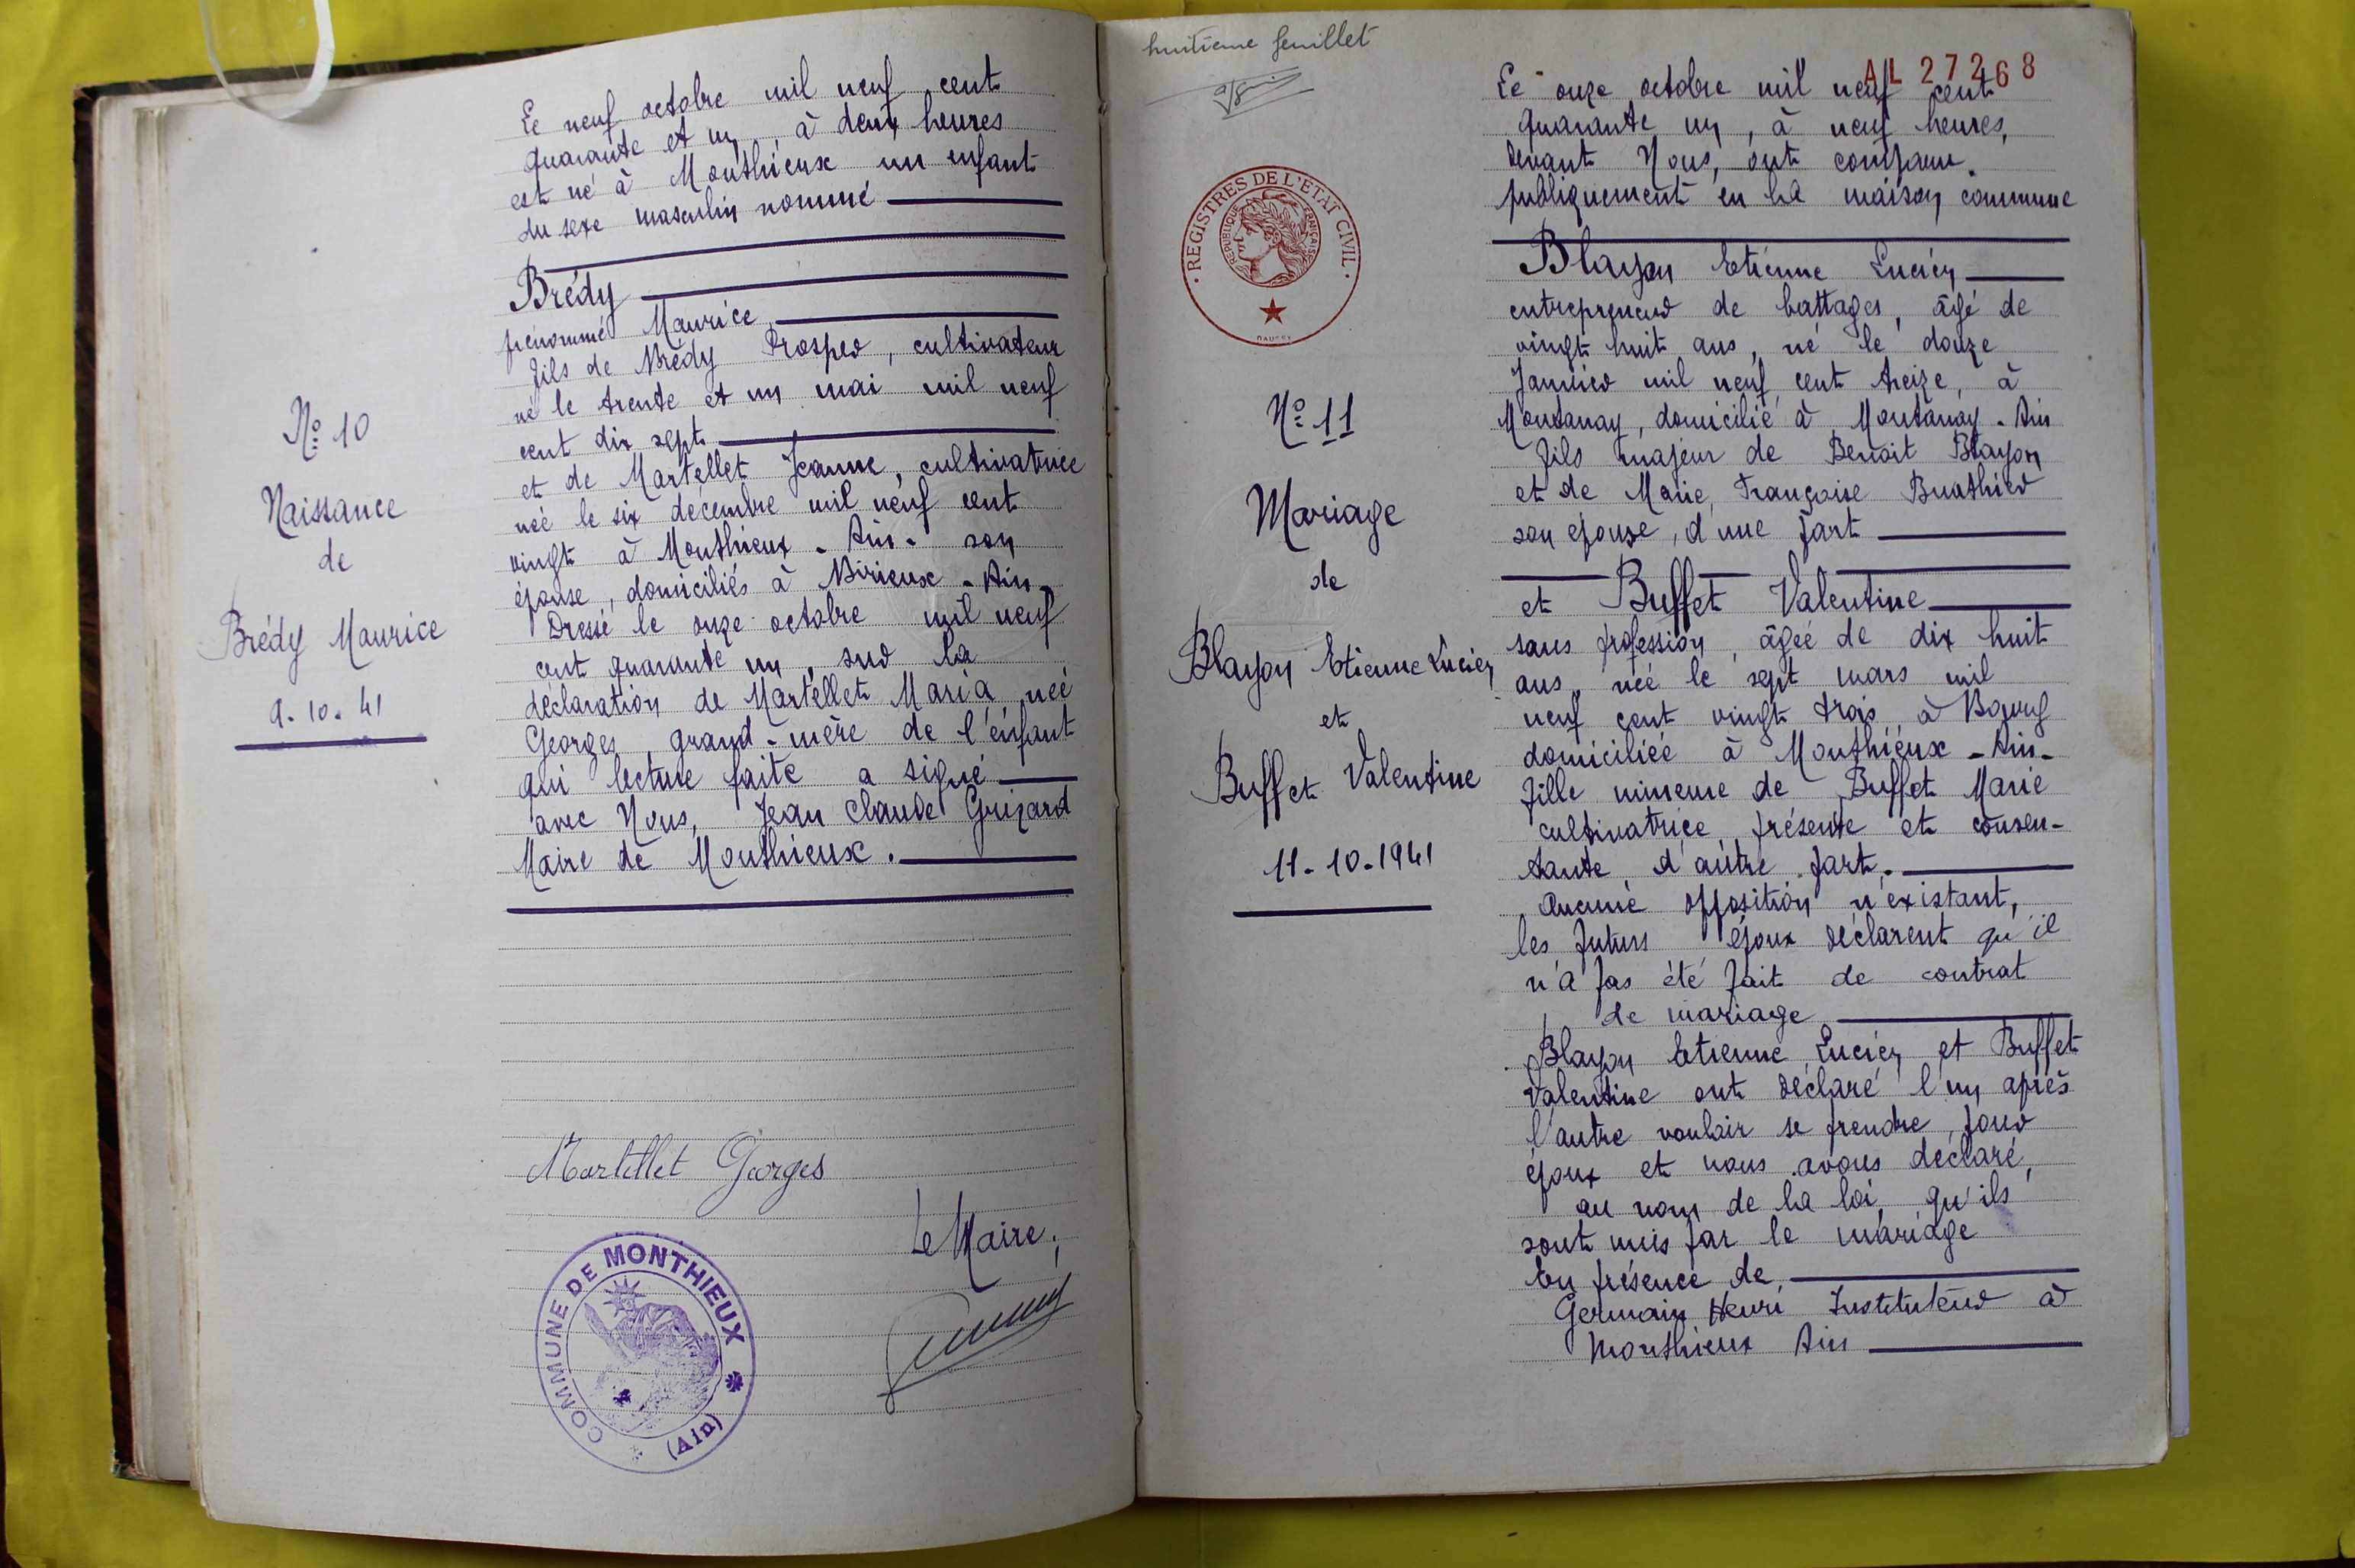 Le neuf octobre mil neuf cent
quarante et un, à deux heures
est né à Monthieux un enfant
du sexe masculin nommé
Brédy
prénommé Maurice
fils de Brédy Prosper, cultivateur
né le trente et un mai mil neuf
cent dix sept
et de Martellet Jeanne, cultivatrice
née le six décembre mil neuf cent
vingt à Monthieux - Ain - son
épouse, domiciliés à Birieux - Ain -
Dressé le onze octobre mil neuf
cent quarante un, sur la
déclaration de Martellet Maria née
Georges, grand-mère de l'enfant
qui lecture faite a signé
avec Nous, Jean Claude Grizard
Maire de Monthieux.
N° 10
Naissance
de
Brédy Maurice
9-10-41
Martellet Georges
Le Maire,
COMMUNE DE MONTHIEUX
(Ain)
huitième feuillet
AL 27268
REGISTRES DE L'ETAT CIVIL
REPUBLIQUE FRANÇAISE
N° 11
Mariage
de
Blayon Etienne Lucien
et
Buffet Valentine
11-10-1941
Le onze octobre mil neuf cent
quarante un, à neuf heures,
devant Nous, ont comparu
publiquement en la maison commune
Blayon Etienne Lucien
entrepreneur de battages, âgé de
vingt huit ans, né le douze
Janvier mil neuf cent treize, à
Montanay, domicilié à Montanay - Ain
fils majeur de Benoit Blayon
et de Marie, Françoise Buathier
son épouse, d'une part
et Buffet Valentine
sans profession, âgée de dix huit
ans, née le sept mars mil
neuf cent vingt trois à Bourg
domiciliée à Monthieux - Ain -
fille mineure de Buffet Marie
cultivatrice, présente et consen-
tante, d'autre part.
Aucune opposition n'existant,
les futurs époux déclarent qu'il
n'a pas été fait de contrat
de mariage
Blayon Etienne Lucien et Buffet
Valentine ont déclaré l'un après
l'autre vouloir se prendre pour
époux et nous avons déclaré,
au nom de la loi, qu'ils
sont unis par le mariage
En présence de
Germain Henri Instituteur à
Monthieux Ain